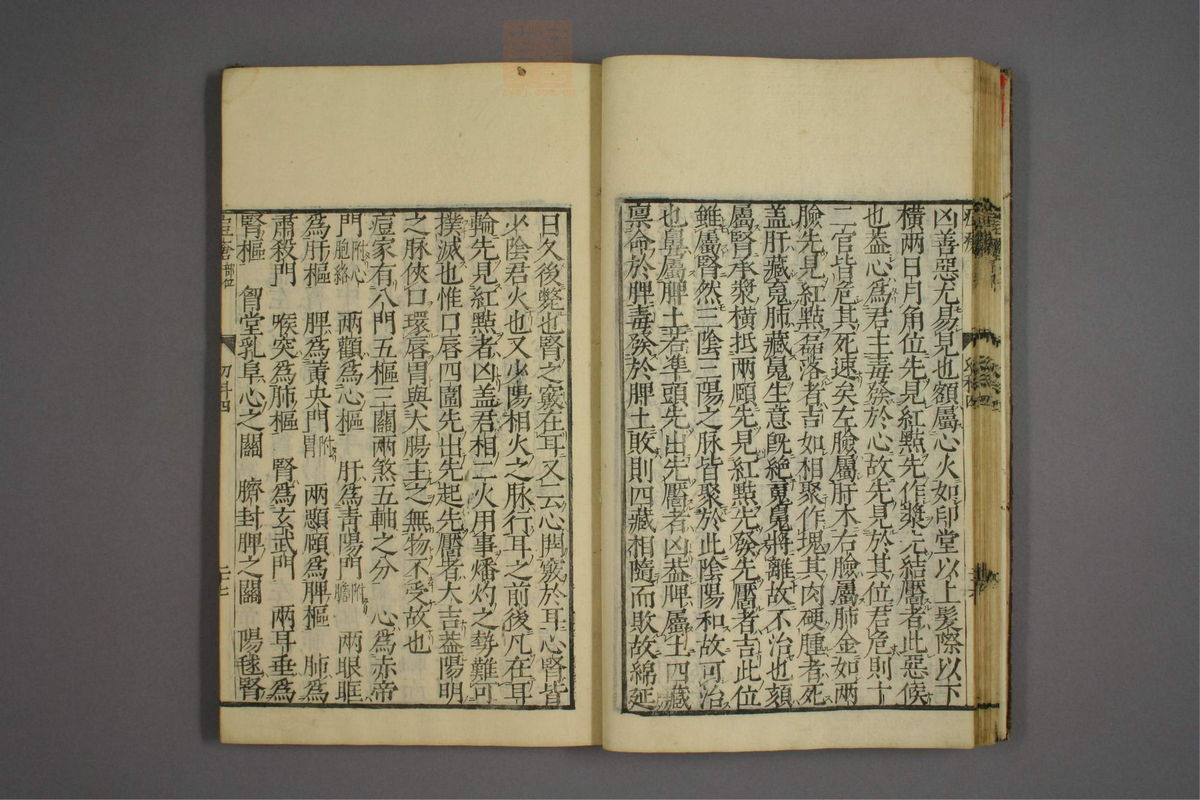 凶善惡尤易見也額屬心火如印堂以上髮際以下
橫兩日月角位先見紅點先作漿先結靨者此惡候
也蓋心爲君主毒發於心故先見於其位君危則十
二官皆危其死速矣左臉屬肝木右臉屬肺金如兩
臉先見紅點磊落者吉如相聚作塊其肉硬腫者死
盖肝藏䰟肺藏魄生意旣絶䰟魄將離故不治也頦
屬腎承漿橫抵兩頤先見紅點先發先靨者吉此位
雖屬腎然三陰三陽之脉皆聚於此陰陽和故可治
也鼻屬脾土若準頭先出先靨者凶蓋脾屬土四藏
禀命於脾毒發於脾土敗則四藏相隨而敗故綿延
日久後斃也腎之竅在耳又云心開竅於耳心腎皆
少陰君火也又少陽相火之脉行耳之前後凡在耳
輪先見紅點者凶盖君相二火用事燔灼之勢難可
撲滅也惟口唇四圍先出先起先靨者大吉蓋陽明
之脉俠口環唇胃與大腸主之無物不受故也
痘家有八門五樞三關兩煞五軸之分 心爲赤帝
門附心胞絡 兩顴爲心樞 肝爲靑陽門附膽 兩眼眶
爲肝樞 脾爲黃央門附胃 兩顋頤爲脾樞 肺爲
肅殺門 喉突爲肺樞 腎爲玄武門 兩耳垂爲
腎樞 胷堂乳阜心之關 臍封脾之關 陽毬腎
痘瘡 部位
幼科四
二七